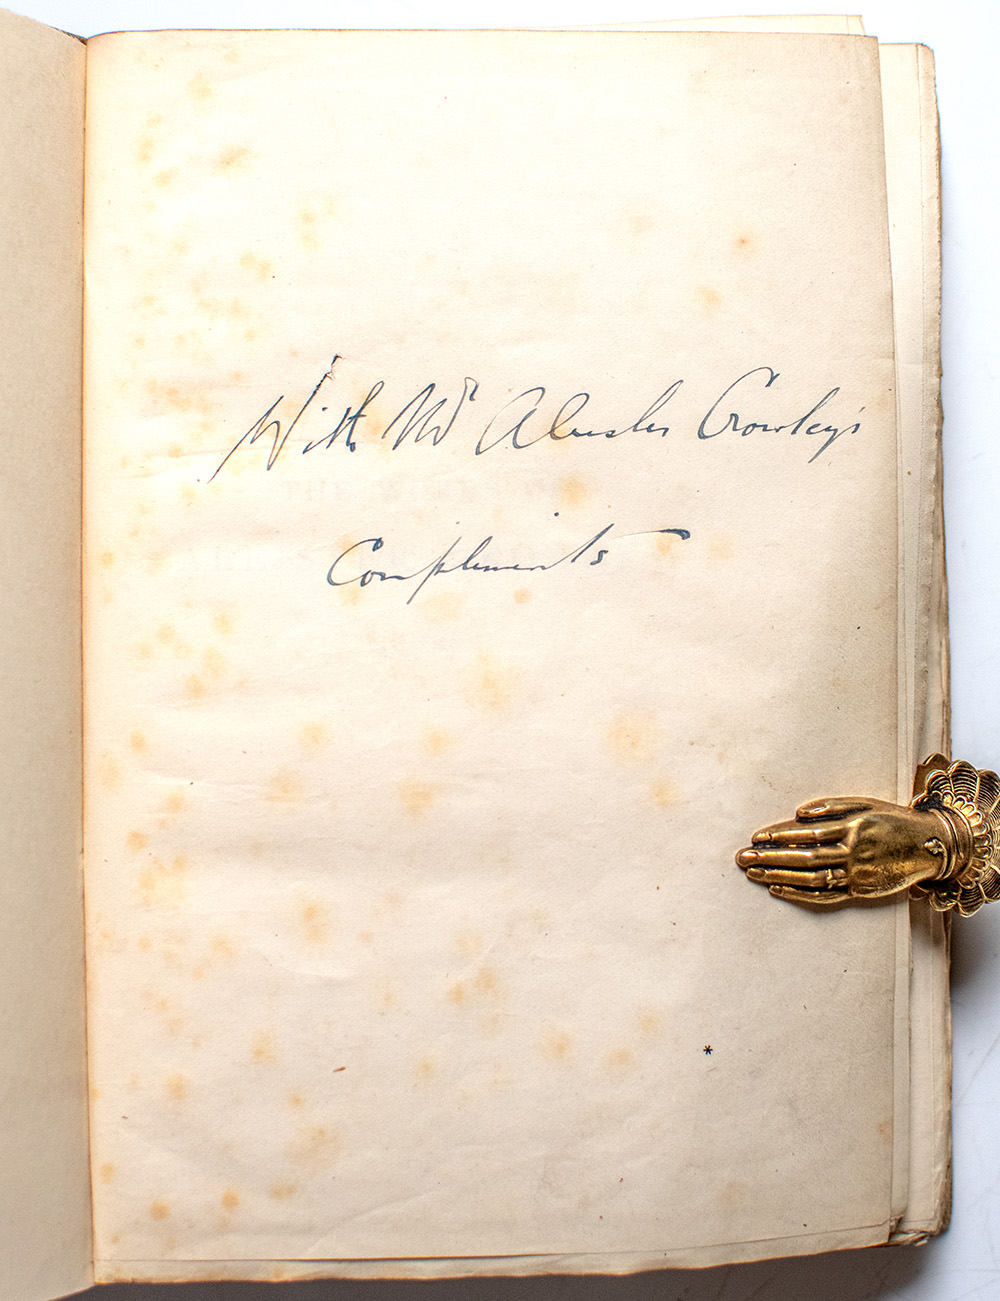 With Mr Aleister Crowley's
Compliments
*